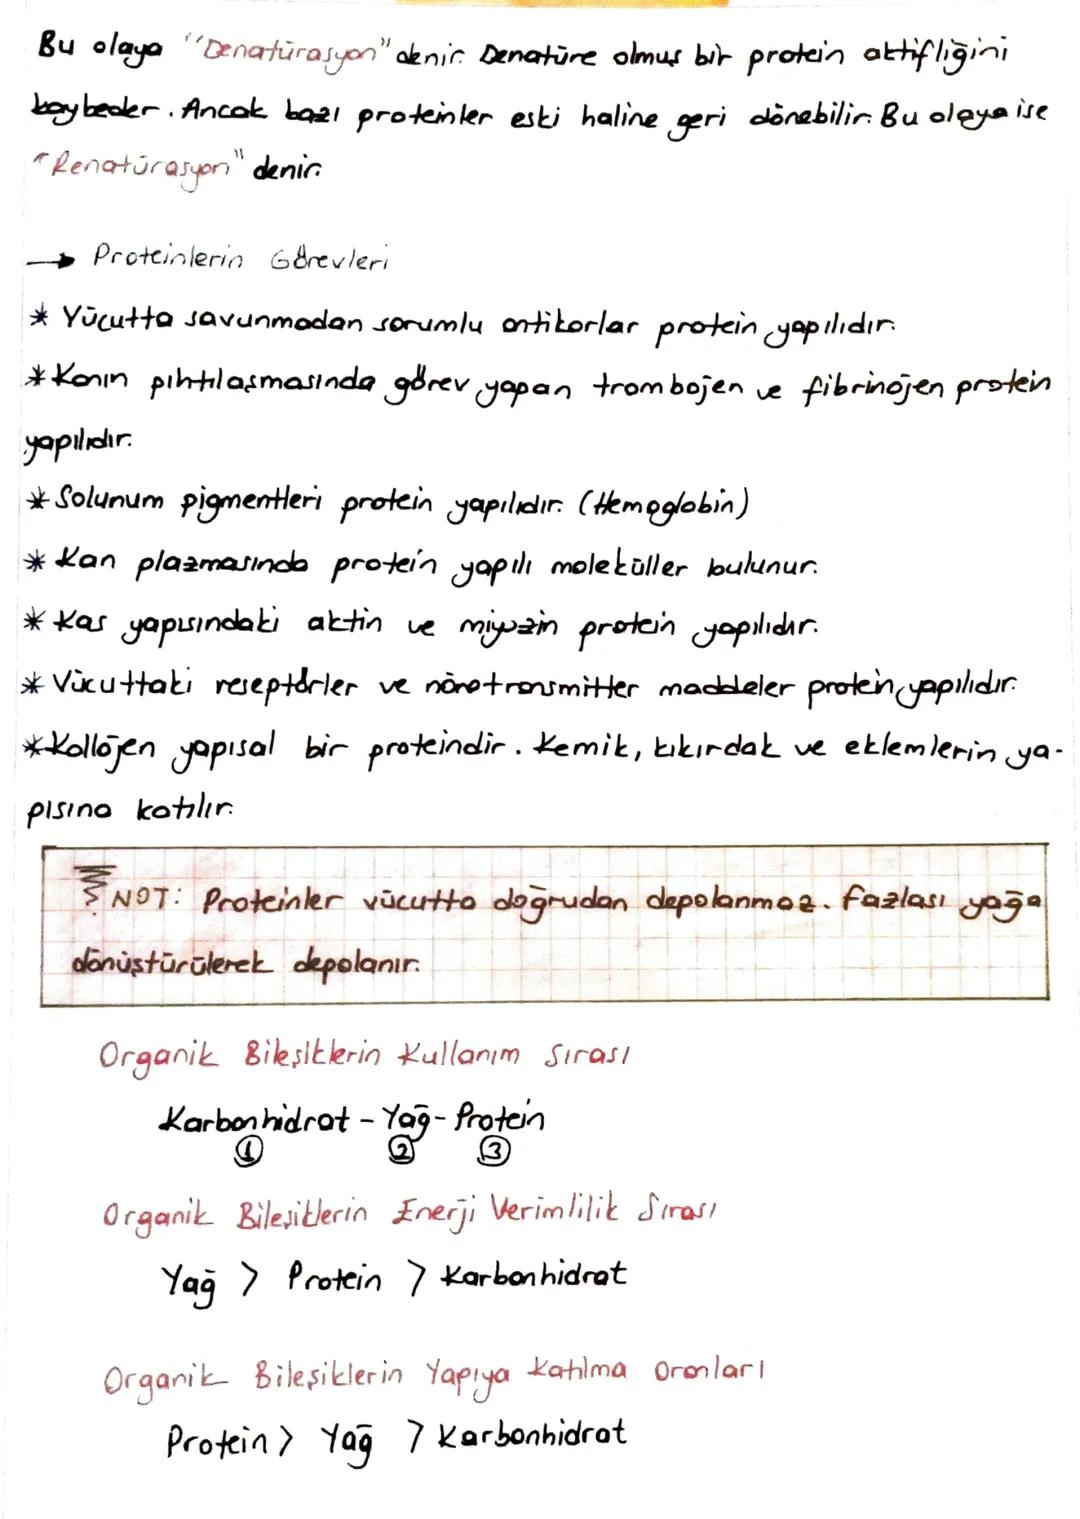 Bu olaya "Denatürasyon" denir. Denatüre olmuş bir protein aktifliğini
kaybeder. Ancak bazı proteinler eski haline geri dönebilir. Bu olaya ise
"Renatürasyon" denir.
→ Proteinlerin Görevleri
* Vücutta savunmadan sorumlu antikorlar protein yapılıdır.
* Kanın pıhtılaşmasında görev yapan trombojen ve fibrinojen protein
yapılıdır.
* Solunum pigmentleri protein yapılıdır. (Hemoglobin)
* Kan plazmasında protein yapılı moleküller bulunur.
* Kas yapısındaki aktin ve miyozin protein yapılıdır.
* Vücuttaki reseptörler ve nörotransmitter maddeler protein yapılıdır.
* Kollojen yapısal bir proteindir. Kemik, kıkırdak ve eklemlerin ya-
pısına katılır.
NOT: Proteinler vücutta doğrudan depolanmaz. Fazlası yağa
dönüştürülerek depolanır.
Organik Bileşiklerin Kullanım Sırası
Karbonhidrat - Yağ - Protein
1 2 3
Organik Bileşiklerin Enerji Verimlilik Sırası
Yağ > Protein > Karbonhidrat
Organik Bileşiklerin Yapıya Katılma Oranları
Protein > Yağ > Karbonhidrat